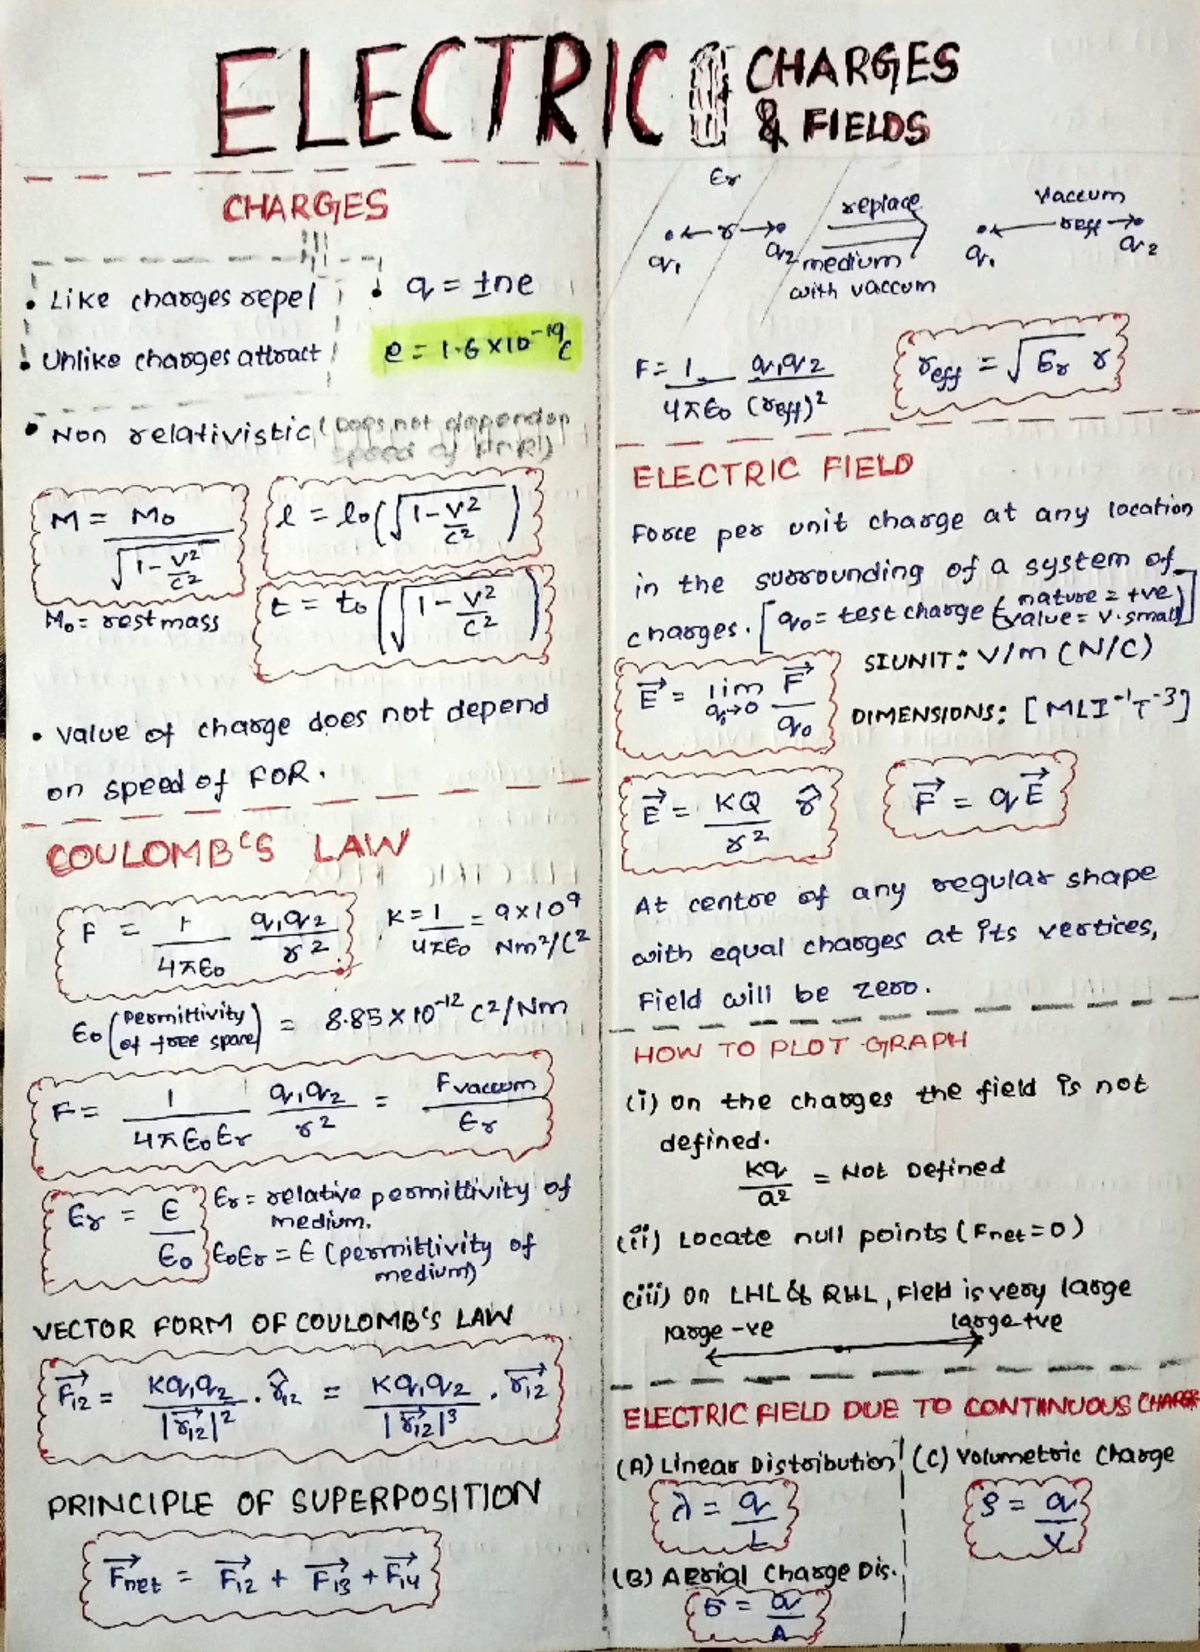 ELECTRIC CHARGES
& FIELDS
CHARGES
• Like charges repel
• Unlike charges attract
• q = ±ne
e = 1.6×10⁻¹⁹C
• Non relativistic (Does not depend on
speed of FOR)
M = M₀/√(1-V²/C²)
M₀ = rest mass
l = l₀(√(1-V²/C²))
t = t₀(√(1-V²/C²))
• Value of charge does not depend
on speed of FOR.
COULOMB'S LAW
F = 1/4πϵ₀ q₁q₂/r²
K = 1/4πϵ₀ = 9×10⁹ Nm²/C²
ϵ₀ (Permittivity of free space) = 8.85×10⁻¹² C²/Nm
F = 1/4πϵ₀ϵr q₁q₂/r² = Fvaccum/ϵr
ϵr = ϵ/ϵ₀
ϵr = relative permittivity of
medium.
ϵ₀ϵr = ϵ (permittivity of
medium)
VECTOR FORM OF COULOMB'S LAW
F⃗₁₂ = Kq₁q₂/|r⃗₁₂|² . r̂₁₂ = Kq₁q₂/|r⃗₁₂|³ . r⃗₁₂
PRINCIPLE OF SUPERPOSITION
F⃗net = F⃗₁₂ + F⃗₁₃ + F⃗₁₄
ϵr
q₁ r q₂
replace
medium
with vaccum
Vaccum
q₁ reff q₂
F = 1/4πϵ₀ q₁q₂/(reff)²
reff = √ϵr r
ELECTRIC FIELD
Force per unit charge at any location
in the surrounding of a system of
charges. [q₀ = test charge (nature = +ve
value = v.small)]
E⃗ = lim q₀→0 F⃗/q₀
SIUNIT: V/m (N/C)
DIMENSIONS: [MLI⁻¹T⁻³]
E⃗ = KQ/r² r̂
F⃗ = qE⃗
At centre of any regular shape
with equal charges at its vertices,
Field will be zero.
HOW TO PLOT GRAPH
(i) On the charges the field is not
defined.
Kq/a² = Not Defined
(ii) Locate null points (Fnet=0)
(iii) On LHL & RHL, Field is very large
large -ve large +ve
ELECTRIC FIELD DUE TO CONTINUOUS CHARGE
(A) Linear Distribution
λ = q/L
(B) Aerial Charge Dis.
σ = q/A
(C) Volumetric Charge
ρ = q/V